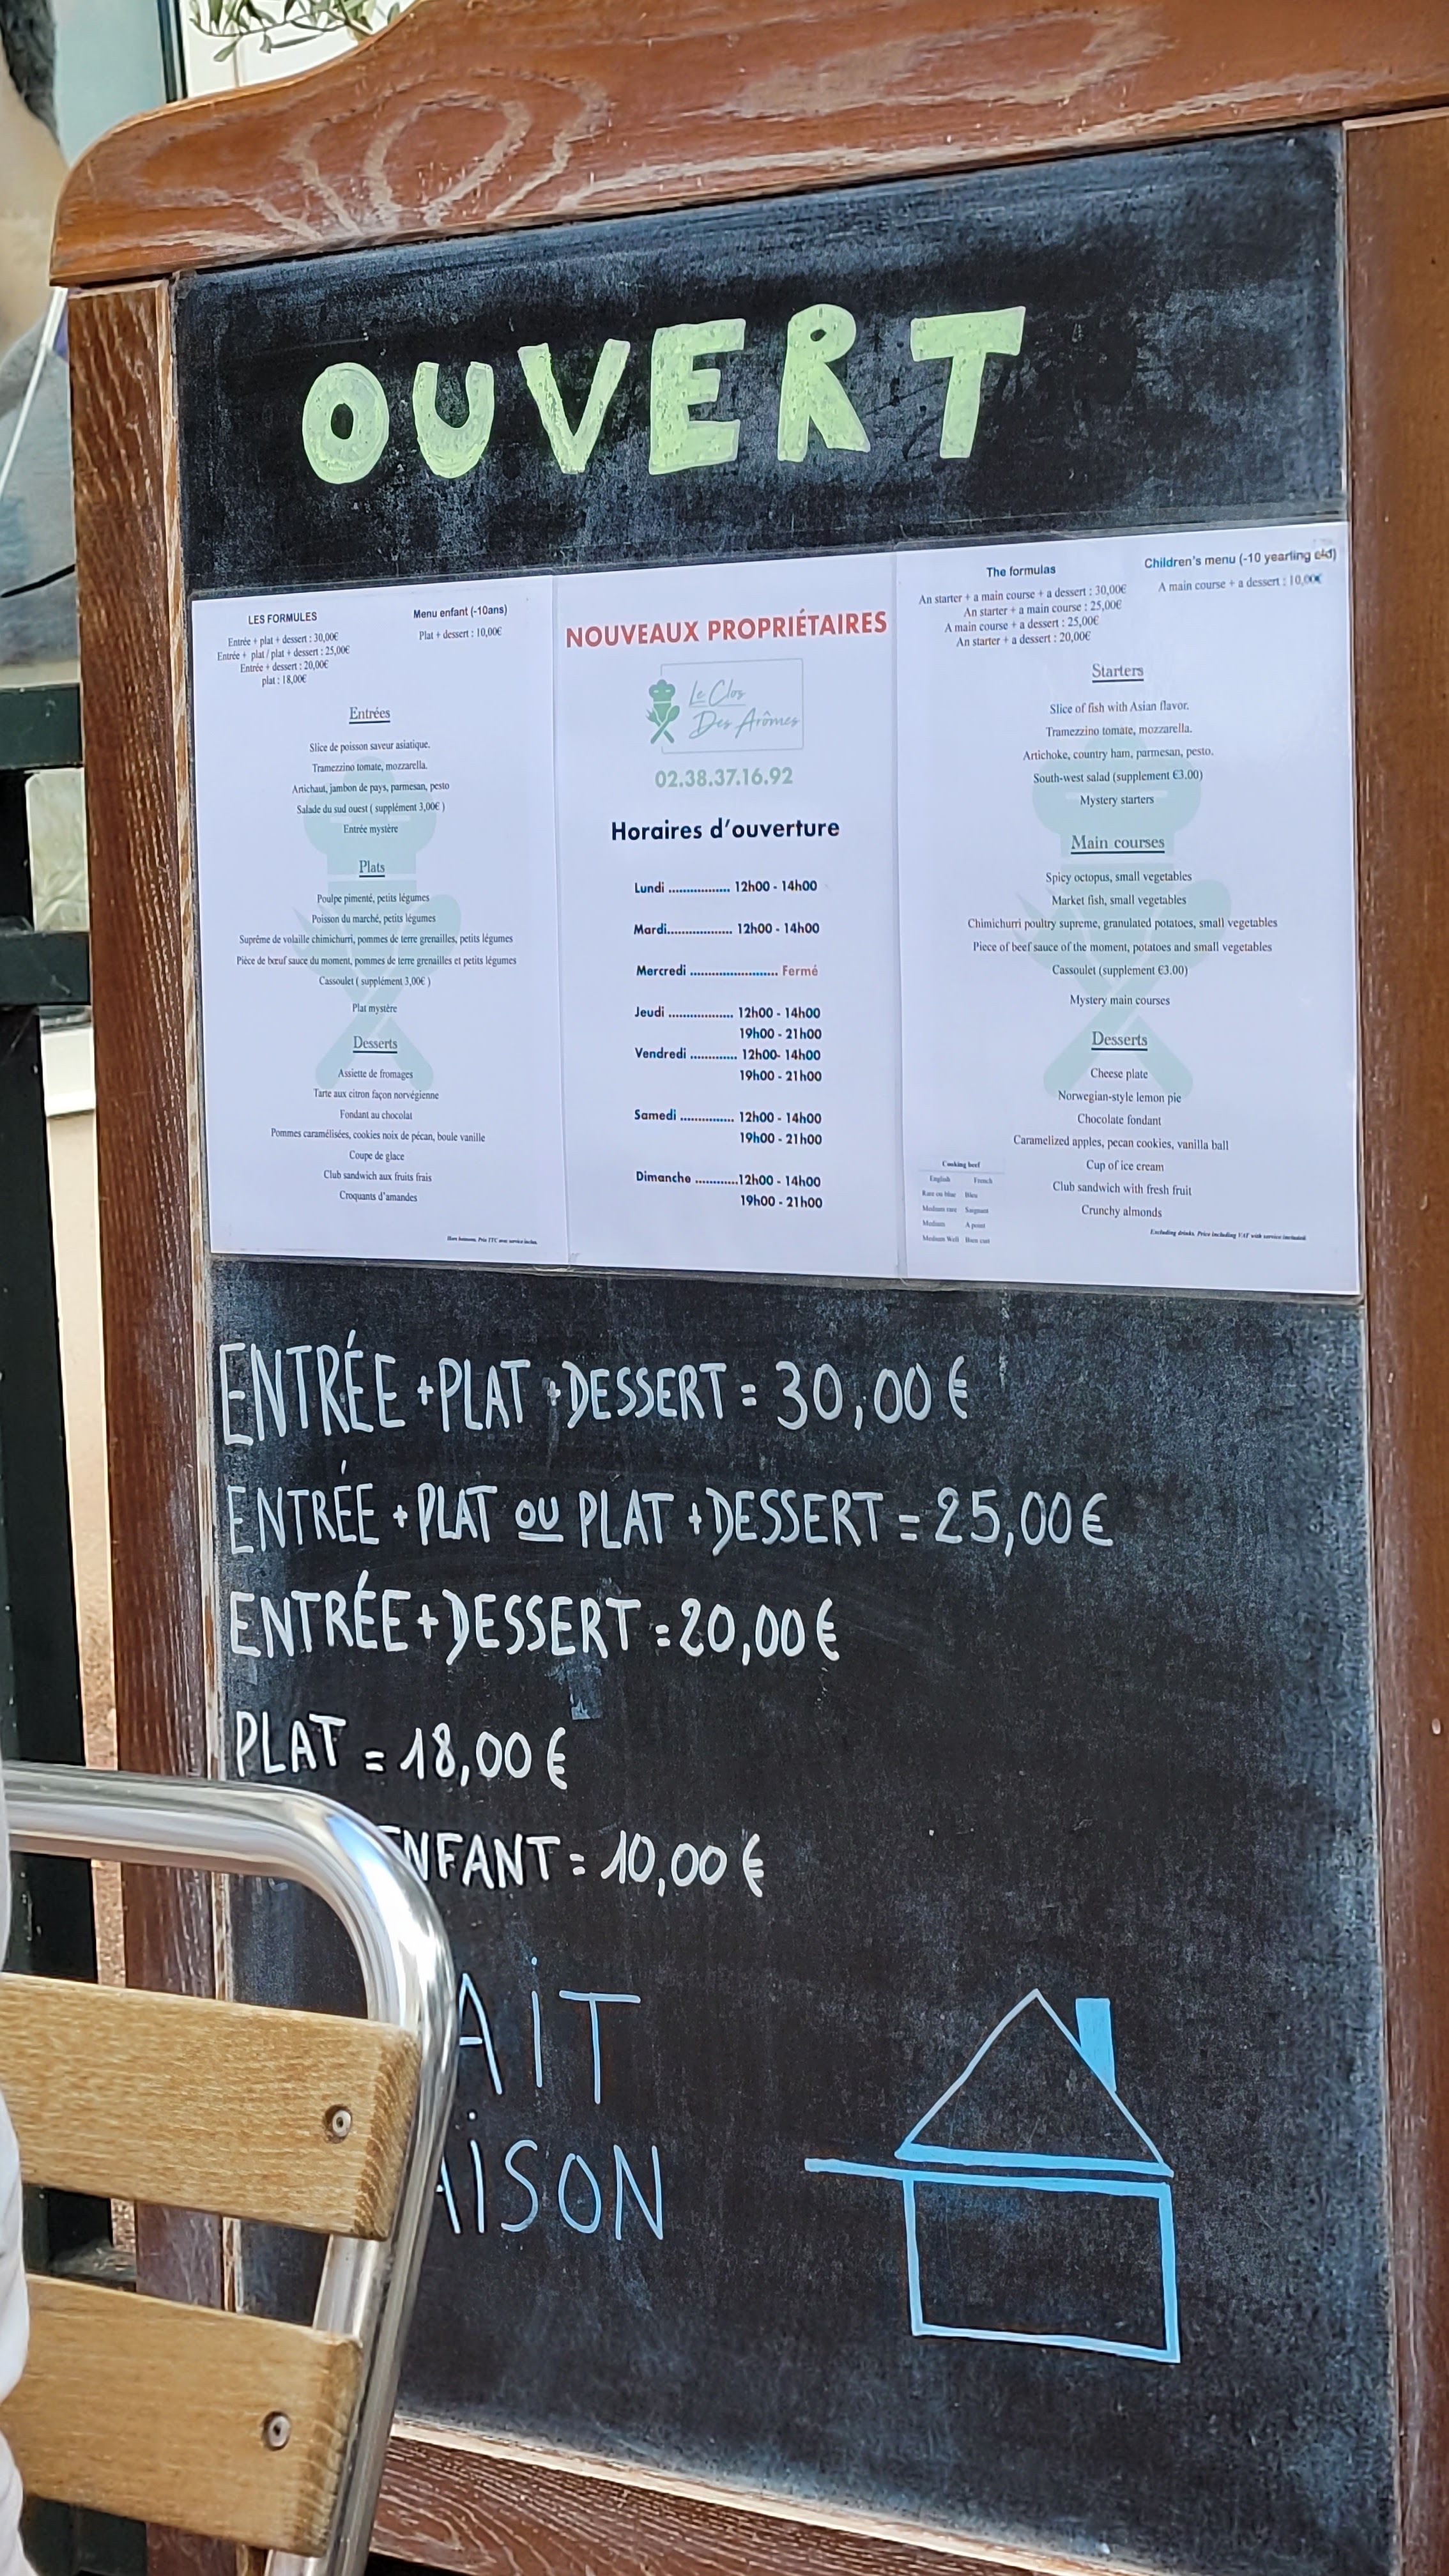 OUVERT
LES FORMULES
Entrée + plat + dessert : 30,00€
Entrée + plat / plat + dessert : 25,00€
Entrée + dessert : 20,00€
plat : 18,00€
Menu enfant (-10ans)
Plat + dessert : 10,00€
Entrées
Slice de poisson saveur asiatique.
Tramezzino tomate, mozzarella.
Artichaut, jambon de pays, parmesan, pesto
Salade du sud ouest ( supplément 3,00€ )
Entrée mystère
Plats
Poulpe pimenté, petits légumes
Poisson du marché, petits légumes
Suprême de volaille chimichurri, pommes de terre grenailles, petits légumes
Pièce de bœuf sauce du moment, pommes de terre grenailles et petits légumes
Cassoulet ( supplément 3,00€ )
Plat mystère
Desserts
Assiette de fromages
Tarte aux citron façon norvégienne
Fondant au chocolat
Pommes caramélisées, cookies noix de pécan, boule vanille
Coupe de glace
Club sandwich aux fruits frais
Croquants d'amandes
Hors boissons. Prix TTC avec service inclus.
NOUVEAUX PROPRIÉTAIRES
Le Clos
Des Arômes
02.38.37.16.92
Horaires d'ouverture
Lundi ................. 12h00 - 14h00
Mardi.................. 12h00 - 14h00
Mercredi ........................ Fermé
Jeudi .................. 12h00 - 14h00
19h00 - 21h00
Vendredi ............. 12h00- 14h00
19h00 - 21h00
Samedi ............... 12h00 - 14h00
19h00 - 21h00
Dimanche ............12h00 - 14h00
19h00 - 21h00
The formulas
An starter + a main course + a dessert : 30,00€
An starter + a main course : 25,00€
A main course + a dessert : 25,00€
An starter + a dessert : 20,00€
Children's menu (-10 yearling old)
A main course + a dessert : 10,00€
Starters
Slice of fish with Asian flavor.
Tramezzino tomate, mozzarella.
Artichoke, country ham, parmesan, pesto.
South-west salad (supplement €3.00)
Mystery starters
Main courses
Spicy octopus, small vegetables
Market fish, small vegetables
Chimichurri poultry supreme, granulated potatoes, small vegetables
Piece of beef sauce of the moment, potatoes and small vegetables
Cassoulet (supplement €3.00)
Mystery main courses
Desserts
Cheese plate
Norwegian-style lemon pie
Chocolate fondant
Caramelized apples, pecan cookies, vanilla ball
Cup of ice cream
Club sandwich with fresh fruit
Crunchy almonds
Cooking beef
English French
Rare or blue Bleu
Medium rare Saignant
Medium A point
Medium Well Bien cuit
Excluding drinks. Price including VAT with service included.
ENTRÉE + PLAT + DESSERT = 30,00 €
ENTRÉE + PLAT OU PLAT + DESSERT = 25,00 €
ENTRÉE + DESSERT = 20,00 €
PLAT = 18,00 €
NFANT = 10,00 €
AIT
AISON